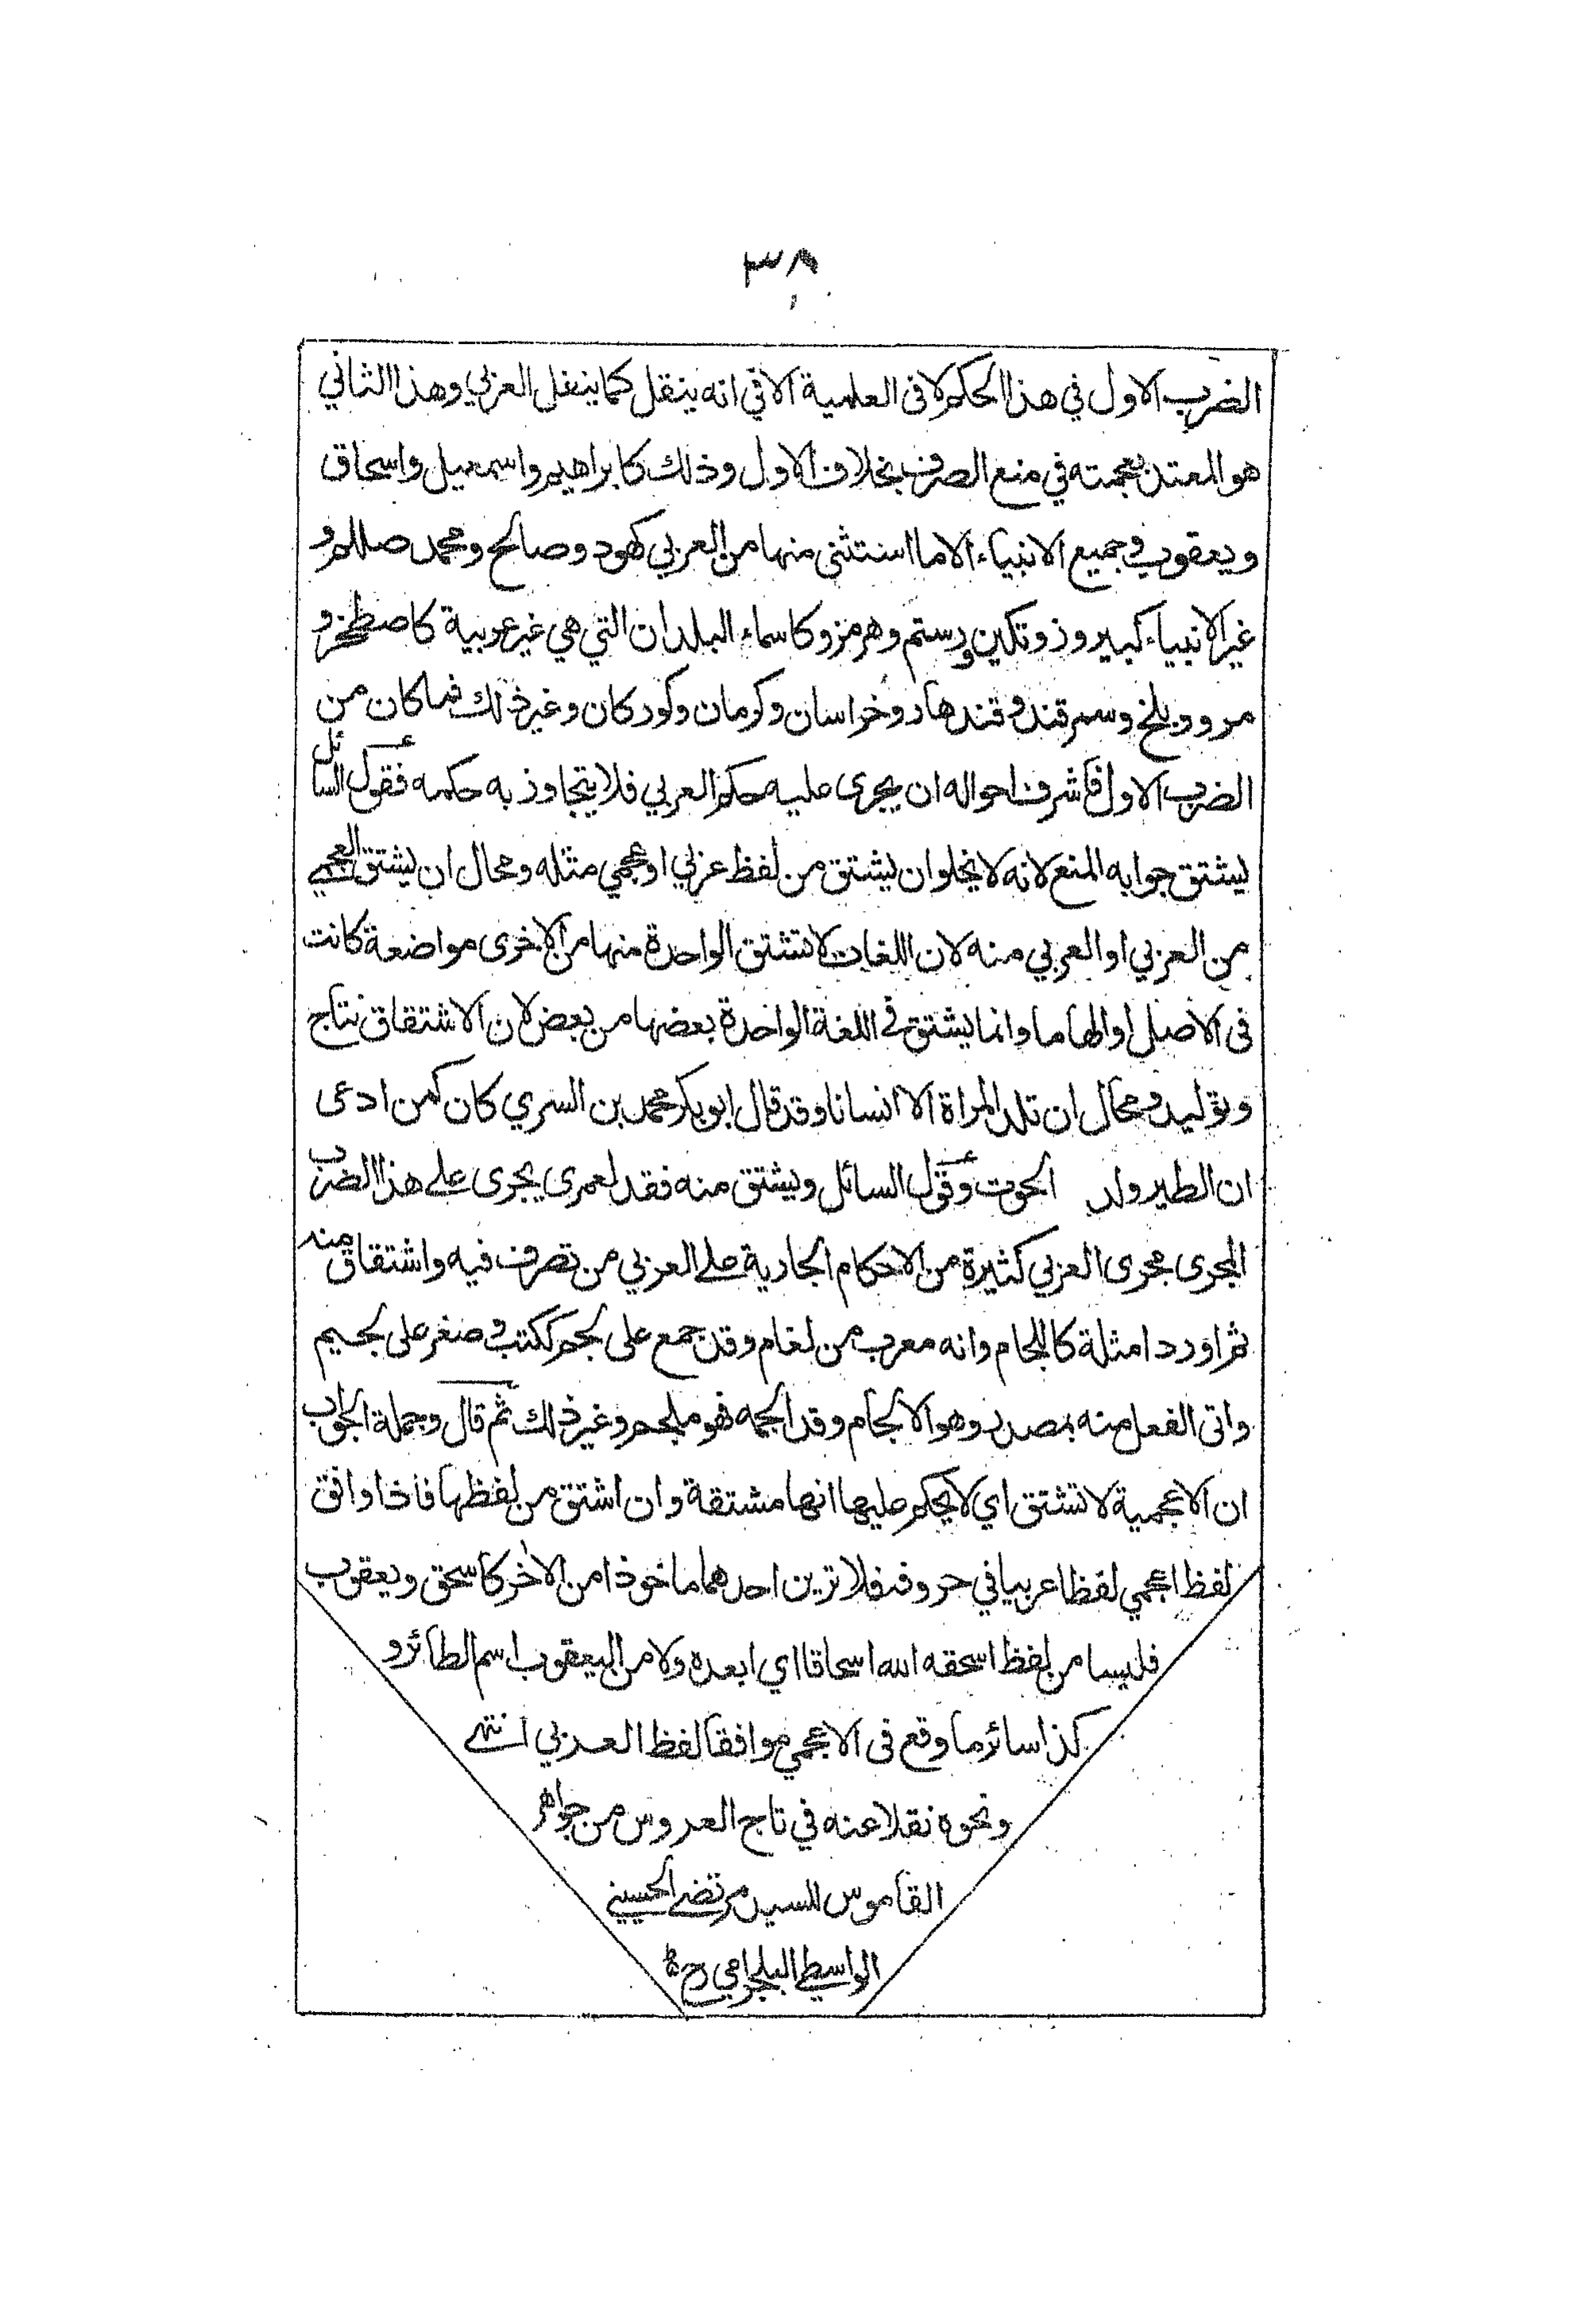 ٣٨
الضرب الاول في هذا الحكم لا فى العلمية الا في انه ينقل كما ينقل العربي وهذا الثاني
هو المعتد بعجمته في منع الصرف بخلاف الاول وذلك كابراهيم واسمعيل واسحاق
ويعقوب وجميع الانبياء الا ما استثنى منها من العربي كهود وصالح ومحمد صللم و
غير الانبياء كبيروز وتكين ورستم وهرمز وكاسماء البلدان التي هي غير عربية كاصطخر و
مرو وبلخ وسمرقند وقندهار وخراسان وكرمان وكوركان وغير ذلك فما كان من
الضرب الاول فأشرف احواله ان يجرى عليه حكم العربي فلا يتجاوز به حكمه فقول السائل
يشتق جوابه المنع لانه لا يخلو ان يشتق من لفظ عربي او عجمي مثله ومحال ان يشتق العجمي
من العربي او العربي منه لان اللغات لا تشتق الواحدة منها من الاخرى مواضعة كانت
فى الاصل او الهاما وانما يشتق في اللغة الواحدة بعضها من بعض لان الاشتقاق نتاج
وتوليد ومحال ان تلد المراة الا انسانا وقد قال ابو بكر محمد بن السري كان كمن ادعى
ان الطير ولد الحوت وقول السائل ويشتق منه فقد لعمري يجرى على هذا الضرب
المجرى مجرى العربي كثيرة من الاحكام الجارية على العربي من تصرف فيه واشتقاق منه
ثم اورد امثلة كاللجام وانه معرب من لغام وقد جمع على لجم ككتب وصغر على لجيم
واتى الفعل منه بمصدر وهو الالجام وقد الجمه فهو ملجم وغير ذلك ثم قال وجملة الجواب
ان الاعجمية لا تشتق اي لا يحكم عليها انها مشتقة وان اشتق من لفظها فاذا وافق
لفظ اعجمي لفظا عربيا في حروفه فلا ترين احدهما ماخوذا من الآخر كاسحق ويعقوب
فليسا من لفظ اسحقه الله اسحاقا اي ابعده ولا من اليعقوب اسم الطائر و
كذا سائر ما وقع فى الاعجمي موافقا لفظ العربي انتهى
ونحوه نقلا عنه في تاج العروس من جواهر
القاموس للسيد مرتضى الحسيني
الواسطي البلجرامي رح